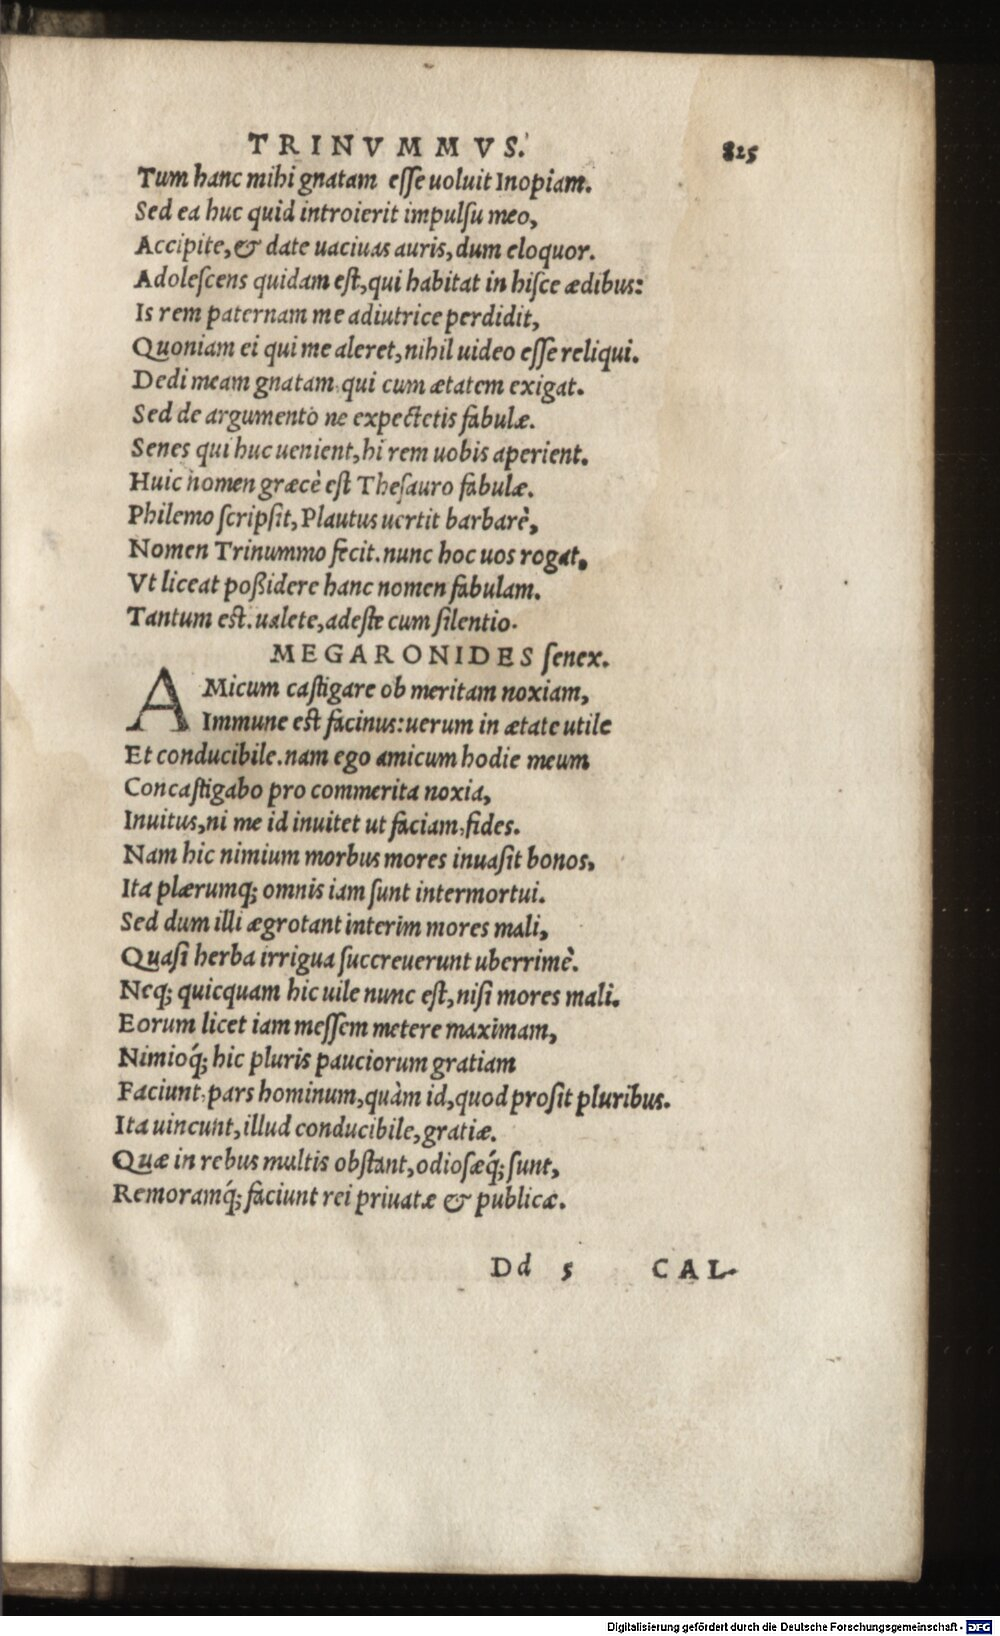 TRINVMMVS. 825
Tum hanc mihi gnatam esse uoluit Inopiam.
Sed ea huc quid introierit impulsu meo,
Accipite, & date uaciuas auris, dum eloquor.
Adolescens quidam est, qui habitat in hisce ædibus:
Is rem paternam me adiutrice perdidit,
Quoniam ei qui me aleret, nihil uideo esse reliqui.
Dedi meam gnatam, qui cum ætatem exigat.
Sed de argumento ne expectetis fabulæ.
Senes qui huc uenient, hi rem uobis aperient.
Huic nomen græcè est Thesauro fabulæ.
Philemo scripsit, Plautus uertit barbarè,
Nomen Trinummo fecit. nunc hoc uos rogat,
Vt liceat poßidere hanc nomen fabulam.
Tantum est. ualete, adeste cum silentio.
MEGARONIDES senex.
AMicum castigare ob meritam noxiam,
Immune est facinus: uerum in ætate utile
Et conducibile. nam ego amicum hodie meum
Concastigabo pro commerita noxia,
Inuitus, ni me id inuitet ut faciam, fides.
Nam hic nimium morbus mores inuasit bonos,
Ita plærumq; omnis iam sunt intermortui.
Sed dum illi ægrotant interim mores mali,
Quasi herba irrigua succreuerunt uberrimè.
Neq; quicquam hic uile nunc est, nisi mores mali.
Eorum licet iam messem metere maximam,
Nimioq́; hic pluris pauciorum gratiam
Faciunt, pars hominum, quàm id, quod prosit pluribus.
Ita uincunt, illud conducibile, gratiæ.
Quæ in rebus multis obstant, odiosæq́; sunt,
Remoramq́; faciunt rei priuatæ & publicæ.
Dd 5 CAL-
Digitalisierung gefördert durch die Deutsche Forschungsgemeinschaft - DFG